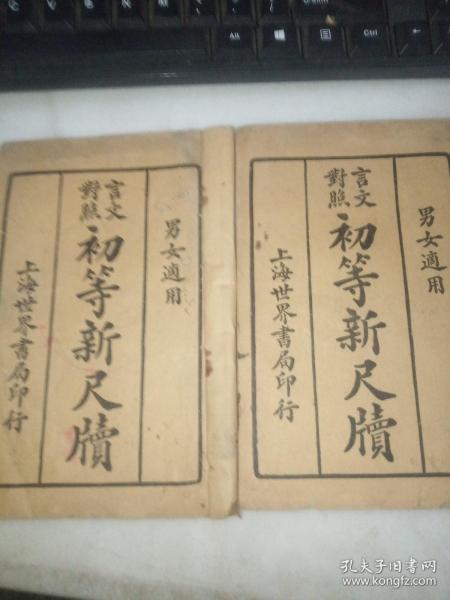 Alt
Alt
Ctrl
男女適用
言文
對照
初等新尺牘
上海世界書局印行
男女適用
言文
對照
初等新尺牘
上海世界書局印行
孔夫子旧书网
www.kongfz.com